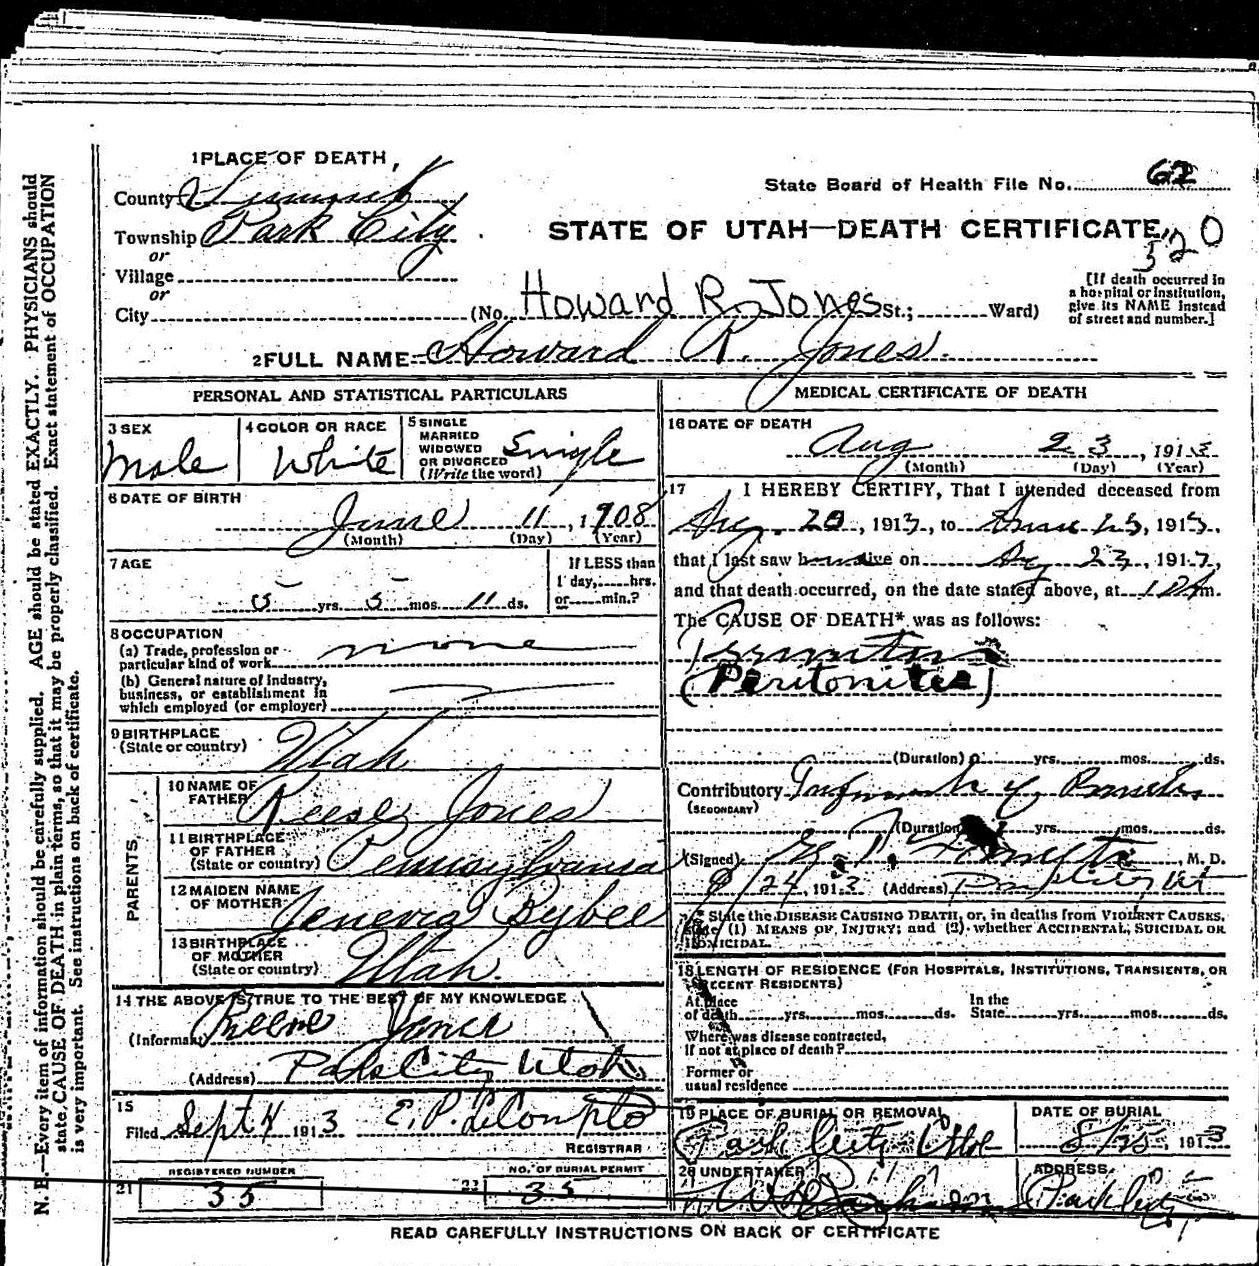 1 PLACE OF DEATH,
County Summit
State Board of Health File No. 62
Township Park City
STATE OF UTAH—DEATH CERTIFICATE
520
or
Village
or
City (No. Howard R. Jones St.; Ward)
[If death occurred in
a hospital or institution,
give its NAME instead
of street and number.]
2 FULL NAME Howard R. Jones.
PERSONAL AND STATISTICAL PARTICULARS
3 SEX
Male
4 COLOR OR RACE
White
5 SINGLE
MARRIED
WIDOWED
OR DIVORCED
(Write the word)
Single
6 DATE OF BIRTH
June 11, 1908
(Month) (Day) (Year)
7 AGE
5 yrs. 5 mos. 11 ds.
If LESS than
1 day, hrs.
or min.?
8 OCCUPATION
(a) Trade, profession or
particular kind of work none
(b) General nature of Industry,
business, or establishment in
which employed (or employer)
9 BIRTHPLACE
(State or country) Utah
PARENTS
10 NAME OF
FATHER Reese Jones
11 BIRTHPLACE
OF FATHER
(State or country) Pennsylvania
12 MAIDEN NAME
OF MOTHER Jenevra Bybee
13 BIRTHPLACE
OF MOTHER
(State or country) Utah.
14 THE ABOVE IS TRUE TO THE BEST OF MY KNOWLEDGE
(Informant) Reese Jones
(Address) Park City Utah
15
Filed Sept 4 1913 E. P. LeCompte
REGISTRAR
REGISTERED NUMBER
21 35
NO. OF BURIAL PERMIT
22 35
MEDICAL CERTIFICATE OF DEATH
16 DATE OF DEATH
Aug 23, 1913
(Month) (Day) (Year)
17 I HEREBY CERTIFY, That I attended deceased from
Aug. 20, 1913, to 23, 1913,
that I last saw him alive on Aug 23, 1913,
and that death occurred, on the date stated above, at m.
The CAUSE OF DEATH* was as follows:
Peritonitis
(Peritonitis)
(Duration) yrs. mos. ds.
Contributory
(SECONDARY)
(Duration) yrs. mos. ds.
(Signed) M. D.
8/24, 1913 (Address) Park City Ut
* State the DISEASE CAUSING DEATH, or, in deaths from VIOLENT CAUSES,
state (1) MEANS OF INJURY; and (2) whether ACCIDENTAL, SUICIDAL OR
HOMICIDAL.
18 LENGTH OF RESIDENCE (FOR HOSPITALS, INSTITUTIONS, TRANSIENTS, OR
RECENT RESIDENTS)
At place
of death yrs. mos. ds.
In the
State yrs. mos. ds.
Where was disease contracted,
If not at place of death?
Former or
usual residence
19 PLACE OF BURIAL OR REMOVAL
Park City Utah
DATE OF BURIAL
8/25, 1913
20 UNDERTAKER
ADDRESS
Park City
READ CAREFULLY INSTRUCTIONS ON BACK OF CERTIFICATE
N. B.—Every item of information should be carefully supplied. AGE should be stated EXACTLY. PHYSICIANS should
state CAUSE OF DEATH in plain terms, so that it may be properly classified. Exact statement of OCCUPATION
is very important. See instructions on back of certificate.